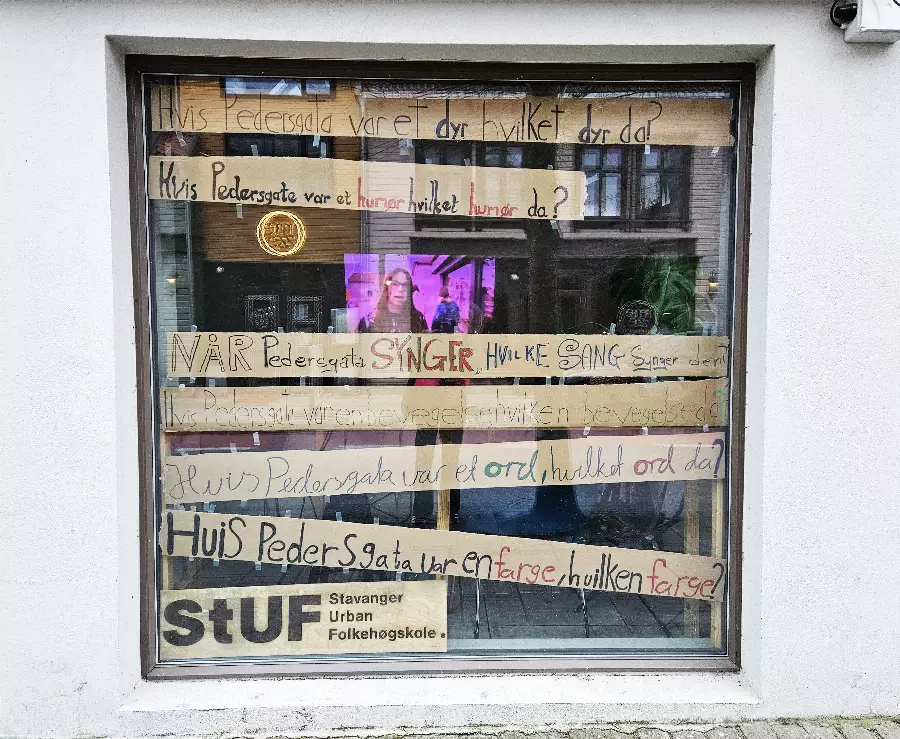 Hvis Pedersgata var et dyr hvilket dyr da?
Hvis Pedersgate var et humør hvilket humør da?
NÅR Pedersgata SYNGER, HVILKE SANG Synger den?
Hvis Pedersgata var en bevegelse hvilken bevegelse da?
Hvis Pedersgata var et ord, hvilket ord da?
HViS PederSgata var en farge, hvilken farge?
StUF
Stavanger
Urban
Folkehøgskole.